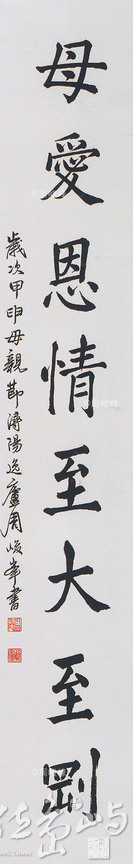 母愛恩情至大至剛
歲次甲申母親節潯陽逸廬周峻峯書